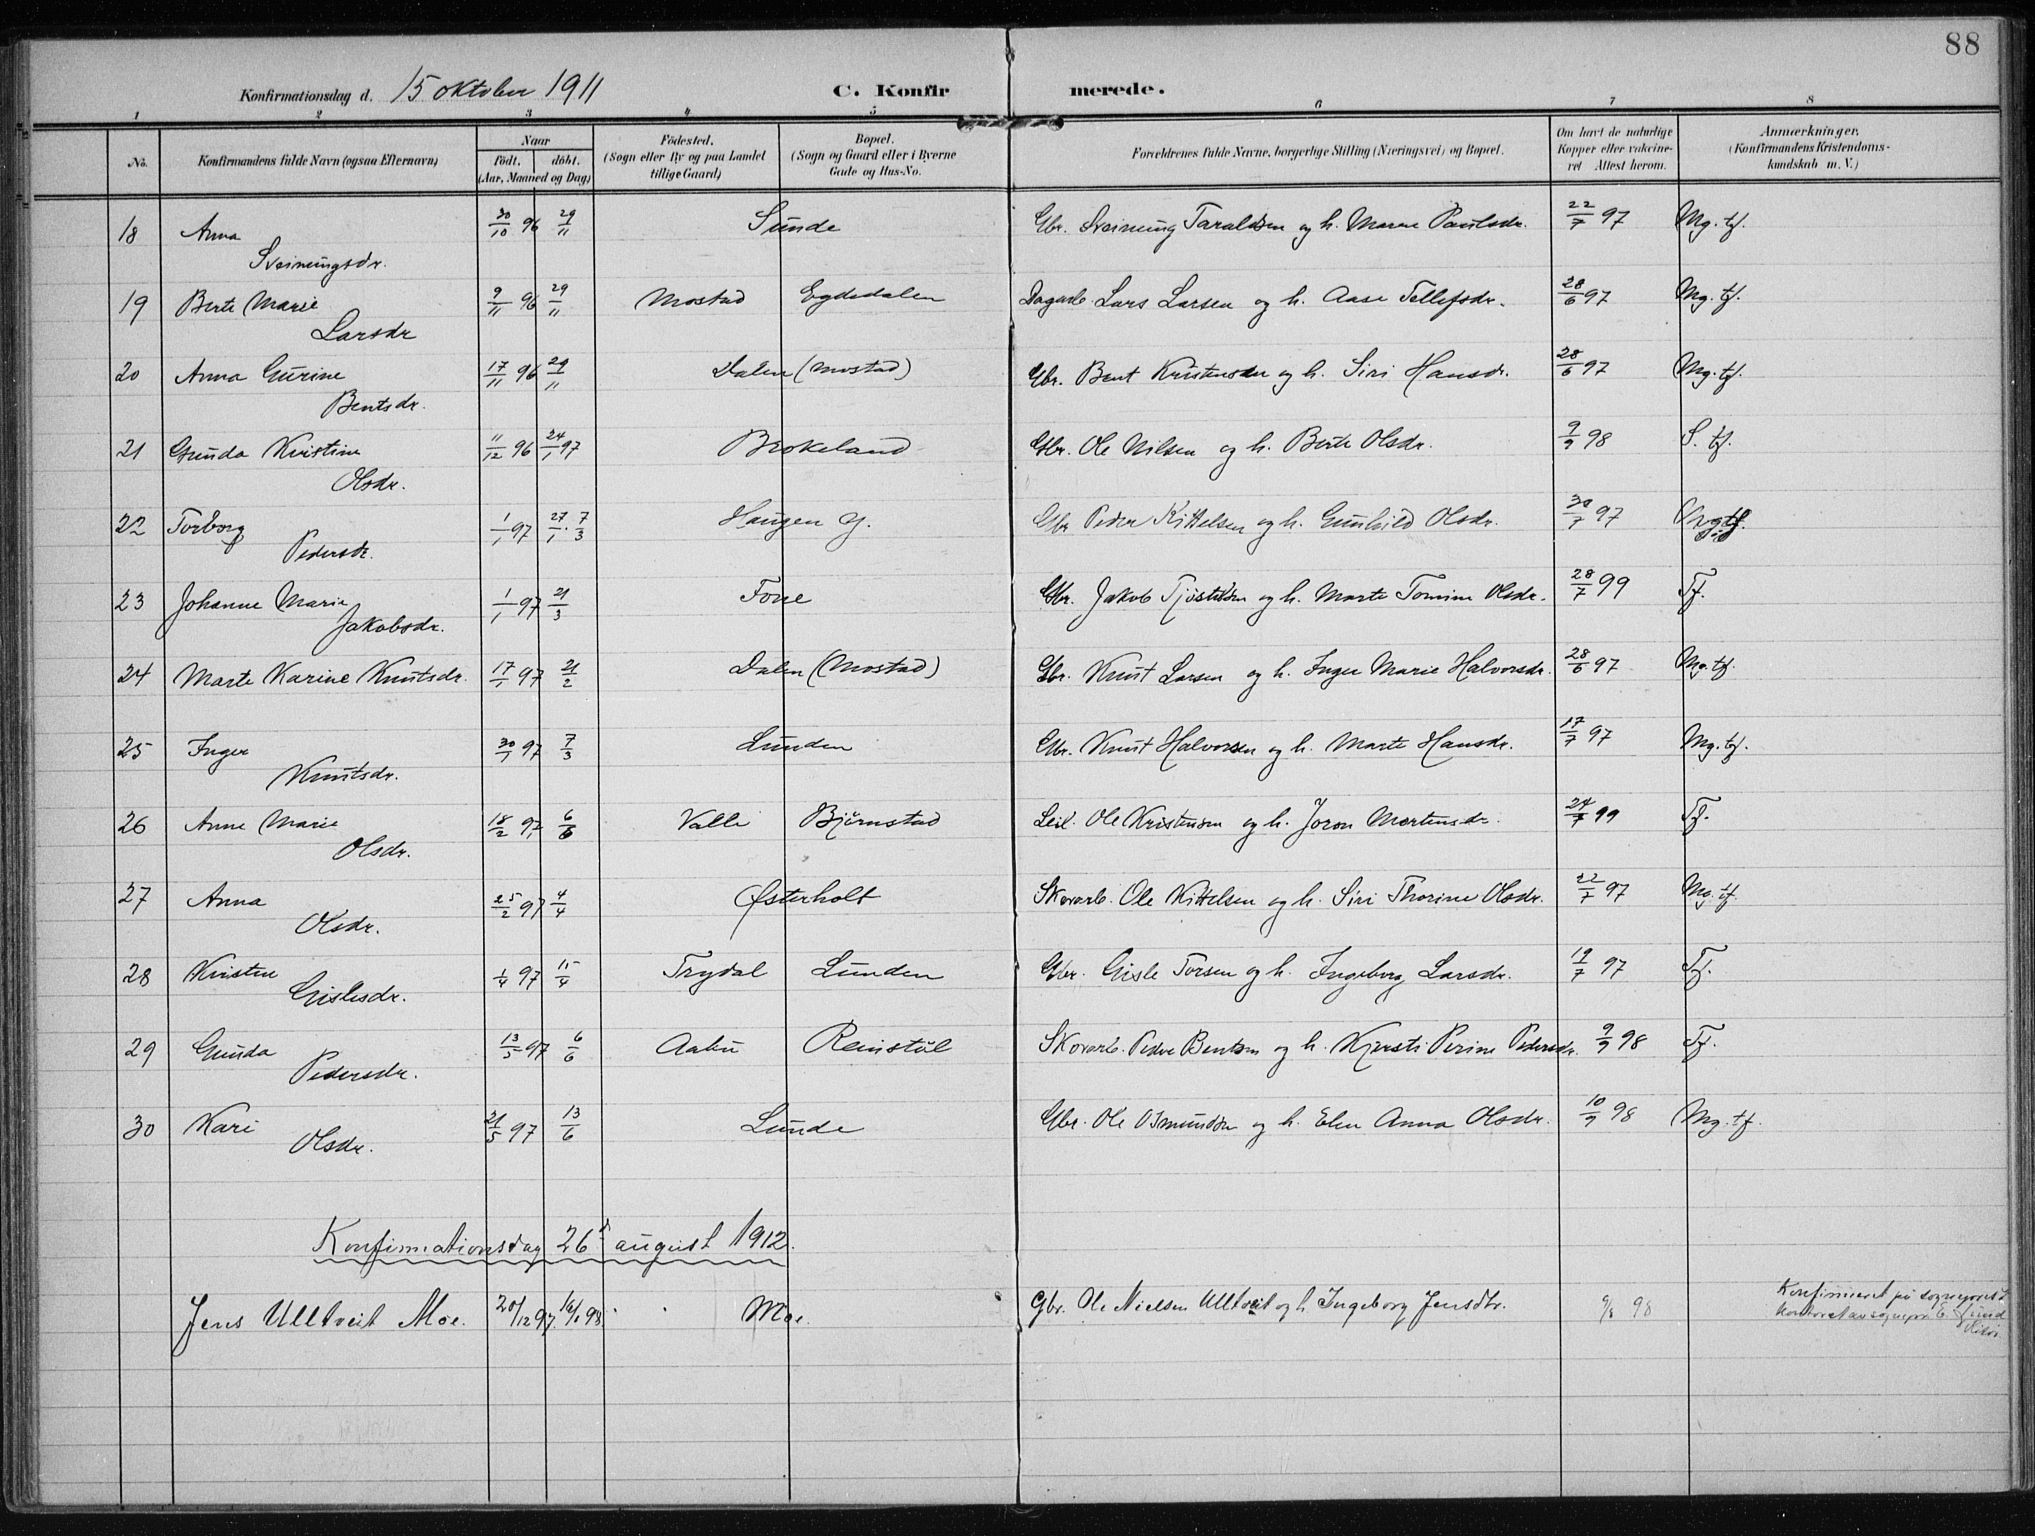 88
Konfirmationsdag d. 15 oktober 1911 C. Konfirmerede.
1 2 3 4 5 6 7 8
No. Konfirmandens fulde Navn (ogsaa Efternavn) Naar födt. döbt. (Aar, Maaned og Dag) Födested. (Sogn eller By og paa Landet tillige Gaard) Bopæl. (Sogn og Gaard eller i Byerne Gade og Hus-No. Forældrenes fulde Navne, borgerlige Stilling (Næringsvei) og Bopæl. Om havt de naturlige Kopper eller vakcineret Attest herom. Anmærkninger. (Konfirmandens Kristendomskundskab m. V.)
18 Anna Sveinungsdr. 30/10 96 29/11 Sunde Gbr. Sveinung Taraldsen og h. Maren Paulsdr. 22/7 97 Mg. tf.
19 Berte Marie Larsdr 9/11 96 29/11 Mostad Egdedalen Dagarb. Lars Larsen og h. Aase Tellefsdr. 28/6 97 Mg. tf.
20 Anna Gurine Bentsdr. 17/11 96 29/11 Dalen (Mostad) Gbr. Bent Kristensen og h. Siri Hansdr. 28/6 97 Mg. tf.
21 Gunda Kristine Olsdr. 11/12 96 24/1 97 Brokeland Gbr. Ole Nilsen og h. Berte Olsdr. 9/9 98 S. tf.
22 Torborg Pedersdr. 1/1 97 27/1 . 7/3 Haugen G. Gbr Peder Kittelsen og h. Gunhild Olsdr. 30/7 97
23 Johanne Marie Jakobsdr. 1/1 97 21/3 Fone Gbr. Jakob Tjöstelsen og h. Marte Tomine Olsdr. 28/7 99 Tf.
24 Marte Karine Knutsdr. 17/1 97 21/2 Dalen (Mostad) Gbr. Knut Larsen og h. Inger Marie Halvorsdr. 28/6 97 Mg. tf.
25 Inger Knutsdr. 30/1 97 7/3 Lunden Gbr. Knut Halvorsen og h. Marte Hansdr. 17/7 97 Mg. tf.
26 Anne Marie Olsdr. 18/2 97 6/6 Valle Björnstad Leil. Ole Kristensen og h. Joron Mortensdr. 24/7 99 Tf.
27 Anna Olsdr. 25/2 97 4/4 Østerholt Skovarb. Ole Kittelsen og h. Siri Thorine Olsdr. 22/7 97 Mg. tf.
28 Kristen Gislesdr. 1/4 97 15/4 Trydal Lunden Gbr. Gisle Torsen og h. Ingeborg Larsdr. 19/7 97 Tf.
29 Gunda Pedersdr. 13/5 97 6/6 Aabu Reinstul Skovarb. Peder Bentsen og h. Kjersti Perine Pedersdr. 9/9 98 Tf.
30 Kari Olsdr. 21/5 97 13/6 Lunde Gbr. Ole Osmundsen og h. Elen Anna Olsdr. 10/9 98 Mg. tf.
Konfirmationsdag 26d august 1912.
Jens Ulltveit Moe. 20/12 97. 16/1 98 Moe. Gbr. Ole Nielsen Ulltveit og h. Ingeborg Jensdtr. 9/8 98 Konfirmeret på sogneprest kontoret av sognepr. E.